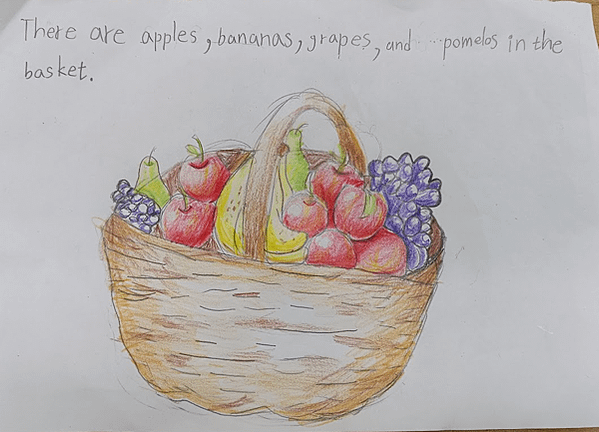 There are apples, bananas, grapes, and ... pomelos in the
basket.